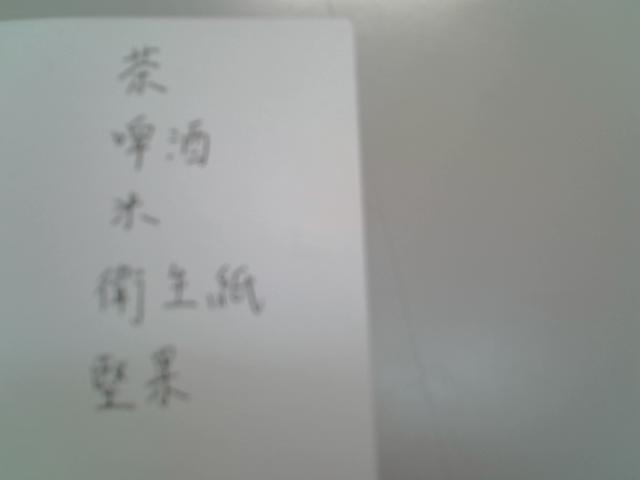 茶
啤酒
冰
衛生紙
堅果